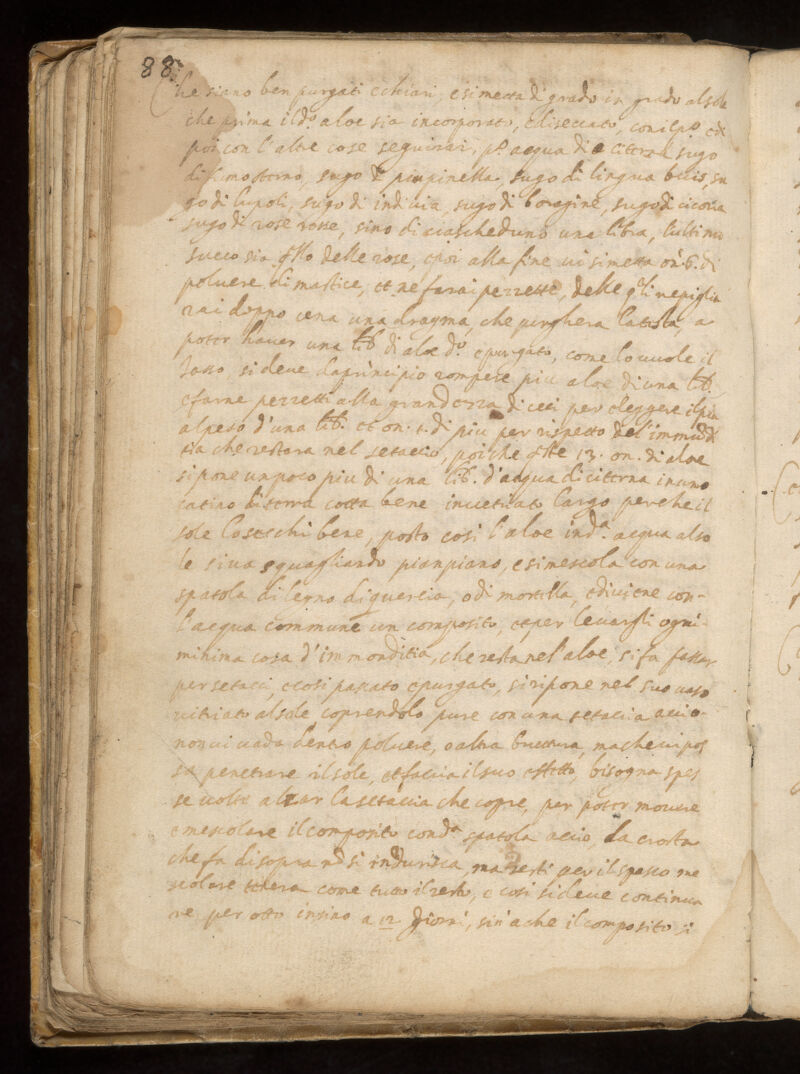 88
Che siano ben purgati e chiari, e si metta di grado in grado al sole
che prima il d.º aloe sia incorporato, e diseccato, con il p.º et
poi con l'altre cose seguirai, p.º acqua di citerna sugo
di fumosterno, sugo di pimpinella, sugo di lingua bovis, su
go di lupoli, sugo di indivia, sugo di boragine, sugo di cicoria
sugo di rose rosse, sino di ciascheduno una libra, l'ultimo
succo sia qllo delle rose, e poi alla fine vi si metta on. 6. di
polvere di mastice, et ne farai pezzette, delle qli ne piglia
rai doppo cena una dragma, che purghera la testa, a
poter haver una lib. di aloe d.º e purgato, come lo vuole il
Tasso, si deve da principio rompere piu aloe di una lib.
e farne pezzetti alla grandezza di ceci per eleggere il piu
al peso d'una lib. et on. 1. di piu per rispetto del'immudi
tia che restara nel setaccio, poiche qste 13. on. di aloe
si pone un poco piu di una lib. d'acqua di citerna in uno
catino di terra cotta bene invetriato largo perche il
sole lo secchi bene, posto cosi l'aloe in d.ª acqua al so
le si va squagliando pian piano, e si mescola con una
spatola di legno di quercia, o di mortella, e diviene con-
l'acqua commune un composito, et per levargli ogni-
minima cosa d'immonditia, che resta nel'aloe, si fa passar
per setacci, e cosi passato e purgato, si ripone nel suo vaso
vitriato al sole coprendolo pure con una setaccia accio-
non vi vada dentro polvere, o altra bruttura, ma che vi pos
sa penetrare il sole, et faccia il suo effetto, bisogna spes
se volte alzar la setaccia che copre, per poter movere
e mescolare il composito con d.ª spatola accio, la crosta
che fa di sopra nō si indurisca, ma resti per il spesso me
scolare tenera come tutto il resto, e cosi si deve continua
re per otto insino a 12 giorni, sin'a che il composito si